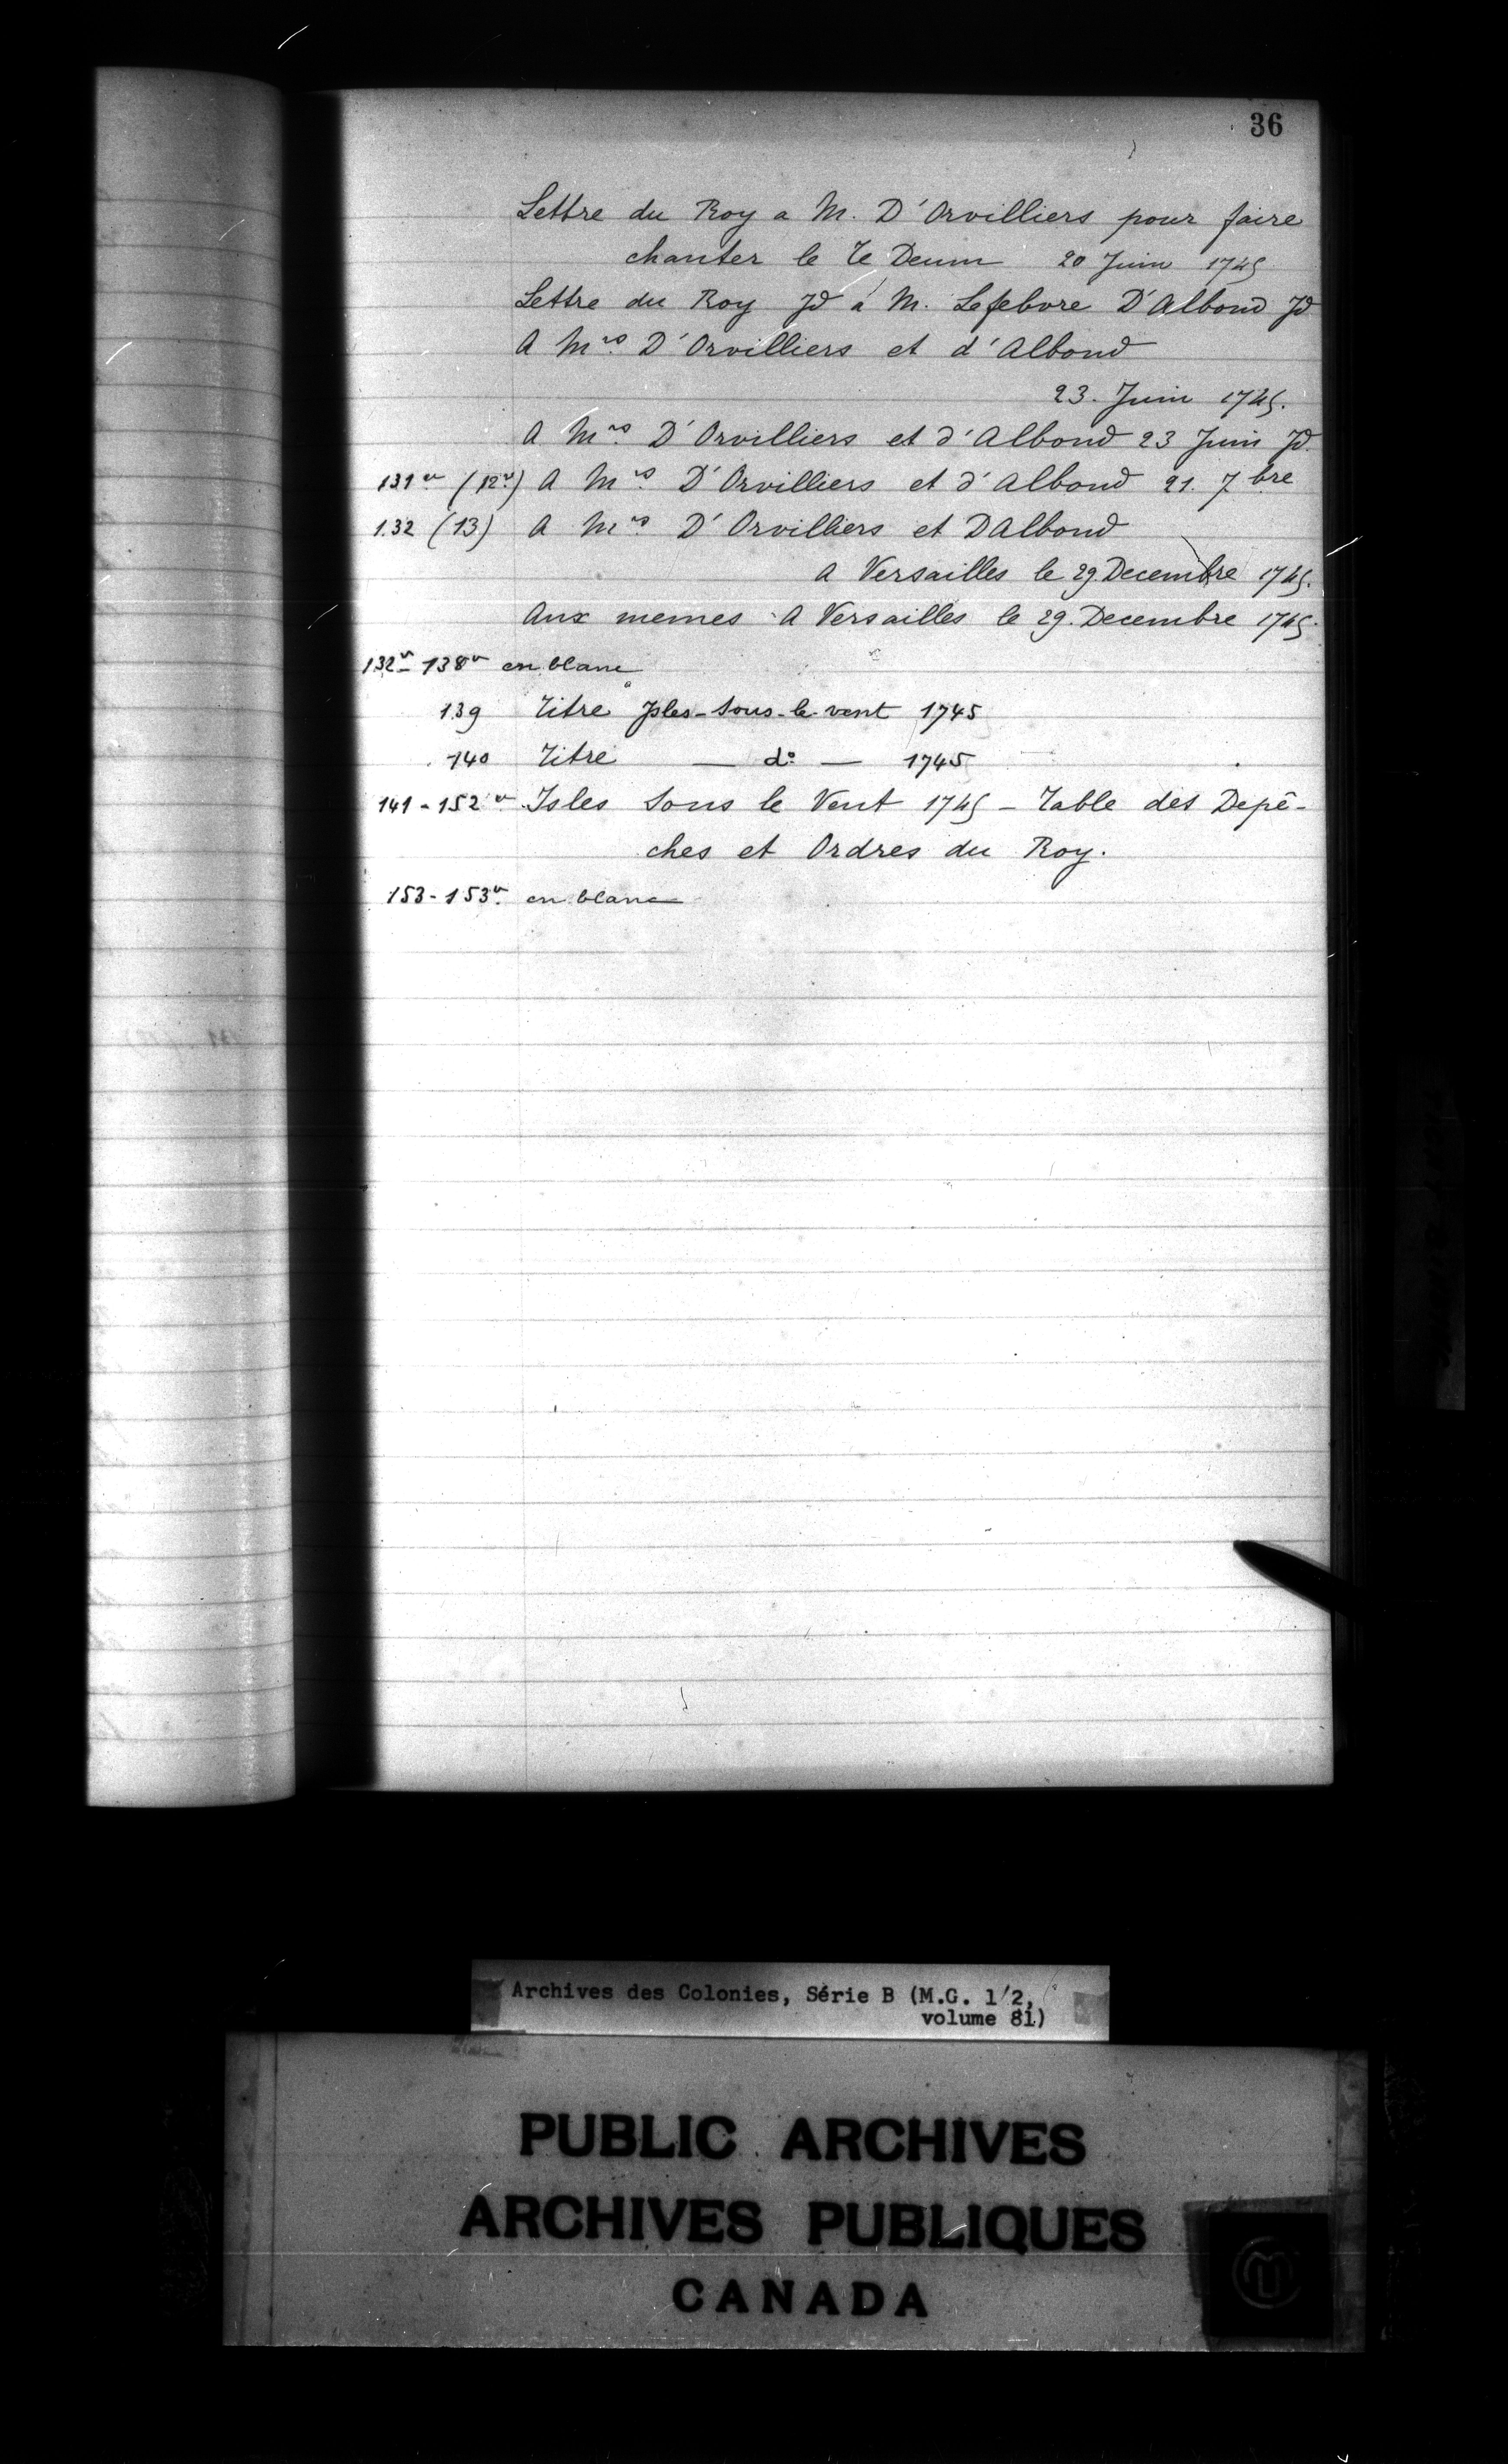 36
Lettre du Roy a M. D'Orvilliers pour faire
chanter le Te Deum 20 Juin 1745
Lettre du Roy Jd a M. Lefebvre D'Albond Jd
A Mrs. D'Orvilliers et d'Albond
23. Juin 1745.
A Mrs. D'Orvilliers et d'Albond 23 Juin Jd.
131v (12v) A Mrs. D'Orvilliers et d'Albond 21. 7bre
132 (13) A Mrs. D'Orvilliers et DAlbond
A Versailles le 29. Decembre 1745.
Aux memes A Versailles le 29. Decembre 1745.
132v - 138v en blanc
139 Titre Isles-sous-le-vent 1745
140 Titre — do — 1745
141-152v Isles Sous le Vent 1745 - Table des Depê-
ches et Ordres du Roy.
153-153v. en blanc
Archives des Colonies, Série B (M.G. 1/2,
volume 81)
PUBLIC ARCHIVES
ARCHIVES PUBLIQUES
CANADA